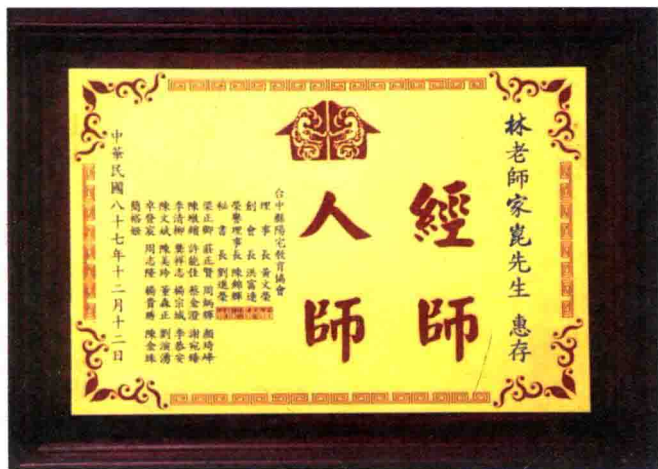 林老師家崑先生 惠存
經師
人師
台中縣陽宅教育協會
理事長 黃文榮
創會長 洪富連
榮譽理事長 陳錦輝
秘書長 劉進榮
梁正卿 莊正賢 周炳輝 顏琦峰
陳墩錯 許能佳 蔡金澄 謝宛臻
李清柳 龔祥志 楊宗城 李恭安
陳文斌 陳美玲 董森正 劉演湧
卓登宸 周志隆 楊貴勝 陳金珠
簡裕姬
中華民國八十七年十二月十二日